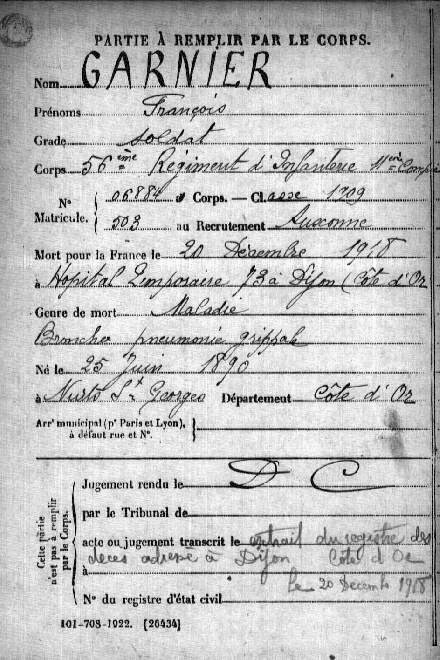 PARTIE À REMPLIR PAR LE CORPS.
Nom GARNIER
Prénoms François
Grade soldat
Corps 56ème Régiment d'Infanterie 11ème Comp
N° 06884 au Corps. — Classe 1909
Matricule. 503 au Recrutement Auxonne
Mort pour la France le 20 Décembre 1918
à Hopital Temporaire 73 à Dijon (Côte d'Or
Genre de mort Maladie
Broncho pneumonie grippale
Né le 25 Juin 1890
à Nuits St Georges Département Côte d'Or
Arrt municipal (pr Paris et Lyon),
à défaut rue et N°.
D C
Cette partie n'est pas à remplir par le Corps.
Jugement rendu le
par le Tribunal de
acte ou jugement transcrit le extrait du registre des
décès adressé à Dijon Côte d'Or
à le 20 Décemb 1918
N° du registre d'état civil
101-708-1922. [26434]